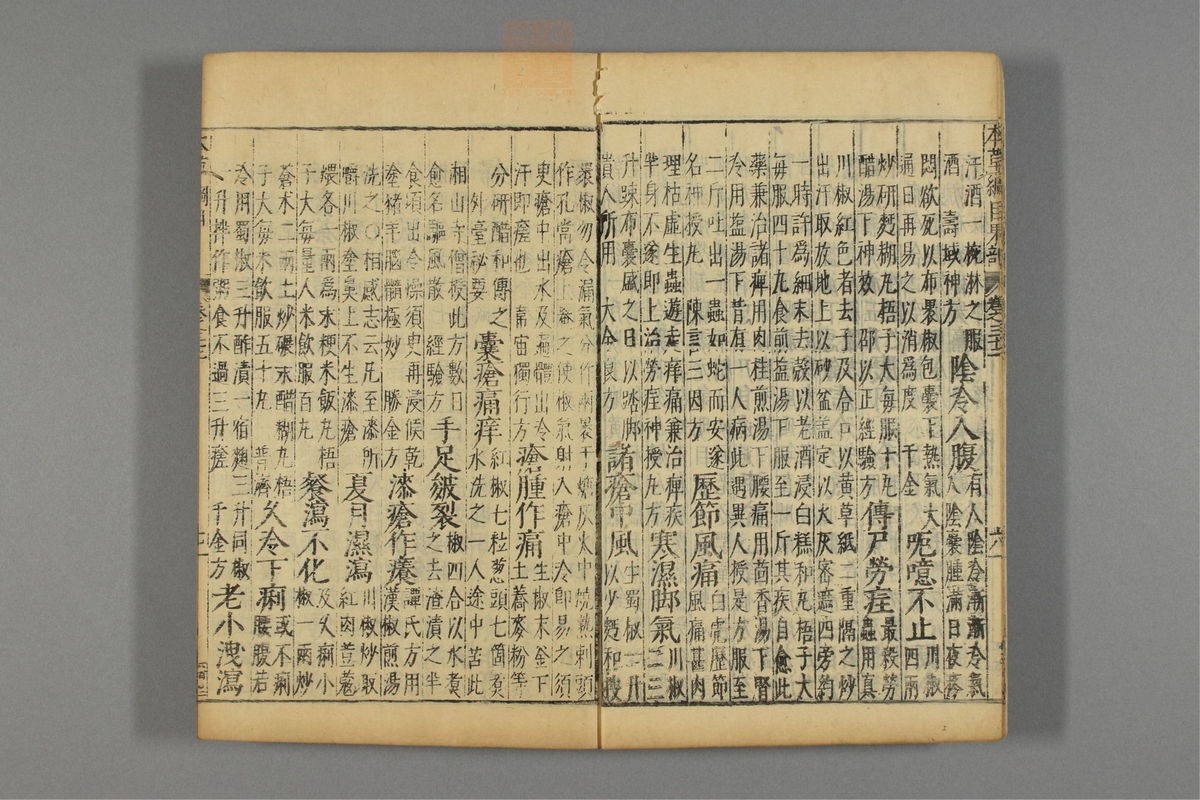 本草綱目果部 卷三十二
汗酒一椀淋之服
酒 壽域神方 陰冷入腹 有人陰冷漸漸冷氣
入陰囊腫滿日夜疼
悶欲死以布裹椒包囊下熱氣大
通日再易之以消爲度 千金 呃噫不止 川椒四兩
炒研麪糊丸梧子大每服十丸
醋湯下神效 邵以正經驗方 傳尸勞疰 最殺勞
蟲用真
川椒紅色者去子及合口以黃草紙二重隔之炒
出汗取放地上以砂盆蓋定以火灰密遮四旁約
一時許爲細末去殼以老酒浸白糕和丸梧子大
每服四十丸食前盐湯下服至一斤其疾自愈此
藥兼治諸痺用肉桂煎湯下腰痛用茴香湯下腎
冷用盐湯下昔有一人病此遇異人授是方服至
二斤吐出一蟲如蛇而安遂
名神授丸 陳言三因方 歷節風痛 白虎歷節
風痛甚肉
理枯虛生蟲遊走痒痛兼治痺疾
半身不遂即上治勞疰神授丸方 寒濕脚氣 川椒
二三
升疎布囊盛之日以踏脚
貴人所用 大全良方 諸瘡中風 生蜀椒一升
以少麪和搜
裹椒勿令漏氣分作兩裹于塘灰火中燒熱剌頭
作孔當瘡上罨之使椒氣射入瘡中冷即易之須
臾瘡中出水及遍體出冷
汗即瘥也 韋宙獨行方 瘡腫作痛 生椒末釜下
土蕎麥粉等
分研醋和傅之
外臺秘要 囊瘡痛痒 紅椒七粒葱頭七箇煮
水洗之一人途中苦此
湘山寺僧授此方數日
愈名驅風散 經驗方 手足皴裂 椒四合以水煮
之去渣漬之半
食頃出令燥須臾再浸候乾
塗猪羊腦髓極妙 勝金方 漆瘡作癢 譚氏方用
漢椒煎湯
洗之○相感志云凡至漆所
嚼川椒塗鼻上不生漆瘡 夏月濕瀉 川椒炒取
紅肉荳蔻
煨各一兩爲末粳米飯丸梧
子大每量人米飲服百丸 飧瀉不化 及久痢小
椒一兩炒
蒼朮二兩土炒碾末醋糊丸梧
子大每米飲服五十丸 普濟 久冷下痢 或不痢
腰腹苦
冷用蜀椒三升酢漬一宿麴三升同椒
一升拌作粥食不過三升瘥 千金方 老小洩瀉